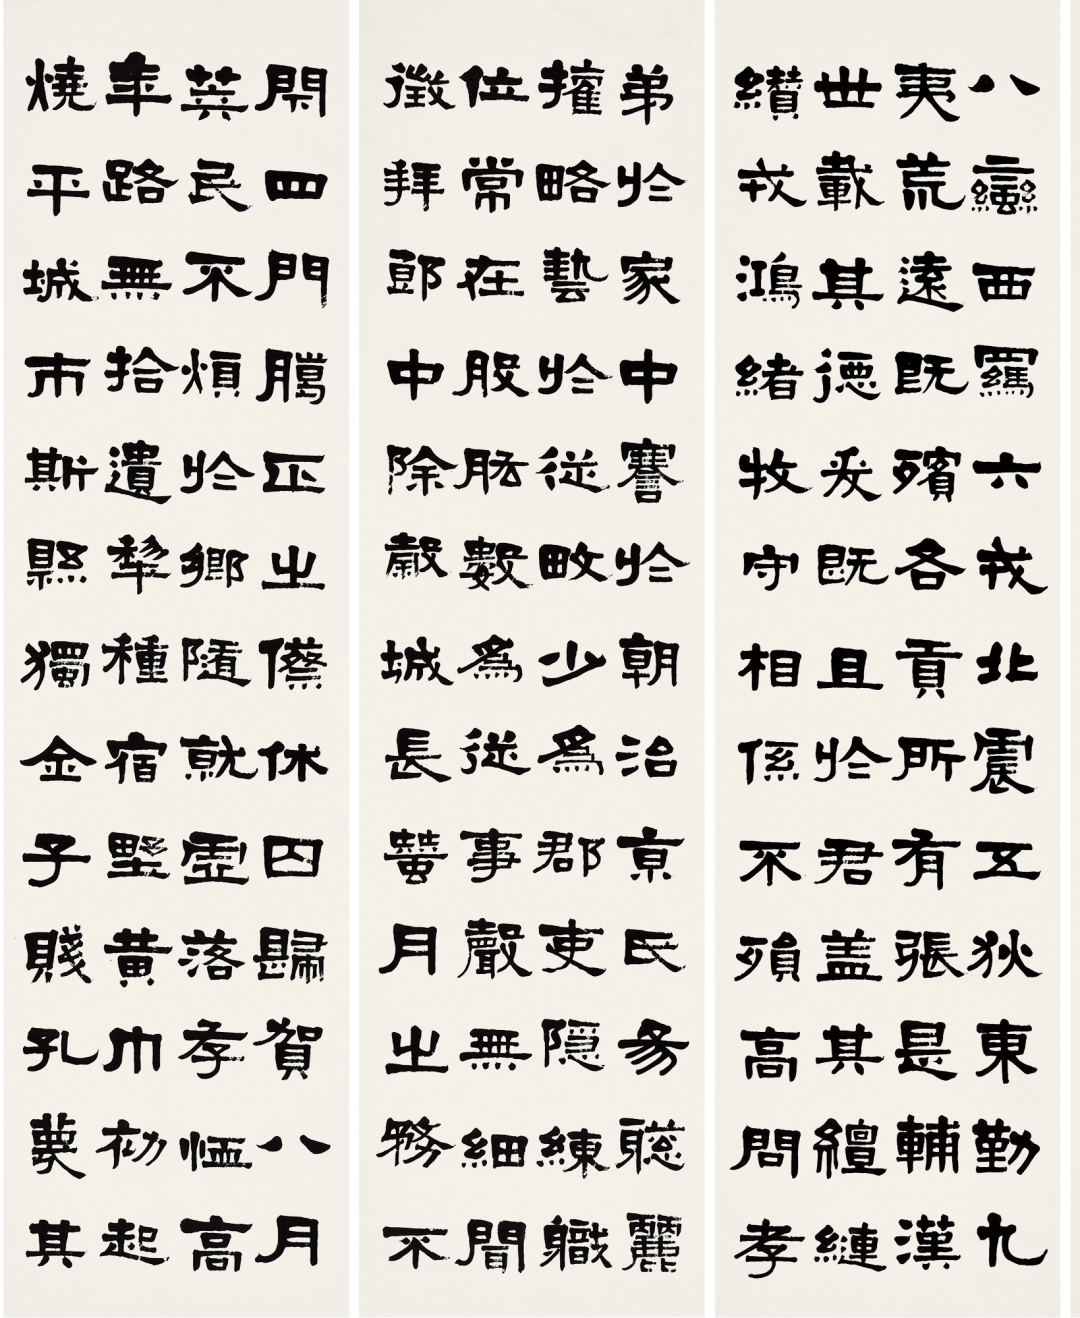 八蠻西羈六戎北震五狄東勤九
夷荒遠既殯各貢所有張是輔漢
世載其德爰既且於君盖其繵縺
纘戎鴻緒牧守相係不殞高問孝
弟於家中謇於朝治京氏易聰麗
攉略藝於從畋少為郡吏隱練職
位常在股肱數為從事聲無細聞
徵拜郎中除穀城長蠶月之務不
閇四門臘正之傺休囚歸賀八月
筭民不煩於鄉隨就虛落存恤高
年路無拾遺犁種宿野黃巾初起
燒平城市斯縣獨全子賤孔蔑其